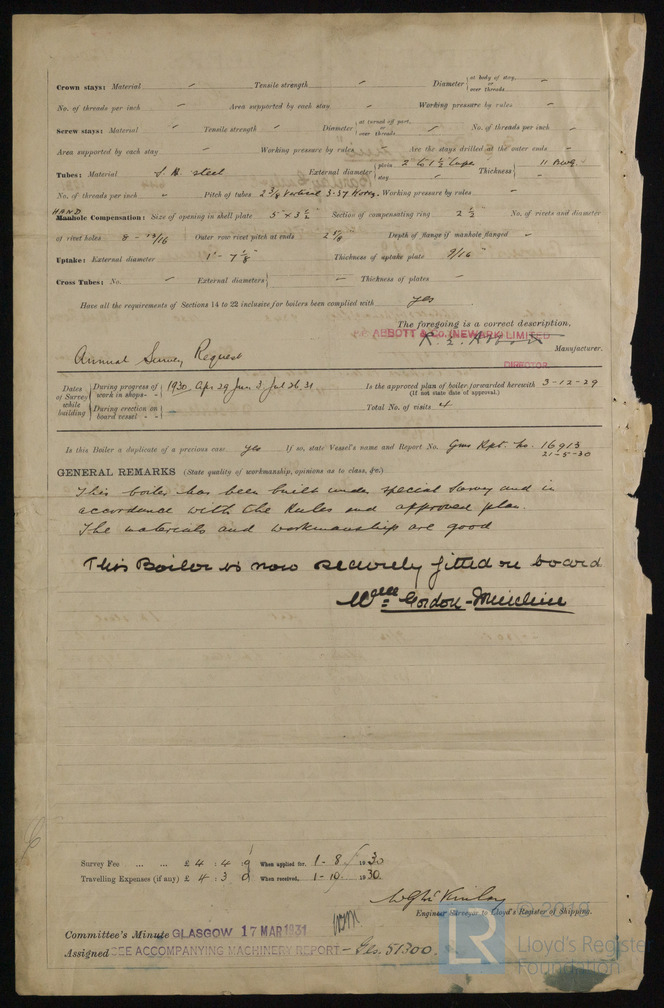 Crown stays: Material Tensile strength Diameter at body of stay, or over threads
No. of threads per inch Area supported by each stay Working pressure by rules
Screw stays: Material Tensile strength Diameter at turned off part, or over threads No. of threads per inch
Area supported by each stay Working pressure by rules Are the stays drilled at the outer ends
Tubes: Material S. D. steel External diameter plain 2" to 1 1/2" stay Thickness 11 BWG.
No. of threads per inch Pitch of tubes 2 3/8 Vertical 3.37 Horz. Working pressure by rules
HAND
Manhole Compensation: Size of opening in shell plate 5" x 3 1/2" Section of compensating ring 2 1/2 No. of rivets and diameter
of rivet holes 8 - 13/16 Outer row rivet pitch at ends 2 5/8 Depth of flange if manhole flanged
Uptake: External diameter 1'- 7 1/8" Thickness of uptake plate 9/16"
Cross Tubes: No. External diameters Thickness of plates
Have all the requirements of Sections 14 to 22 inclusive for boilers been complied with yes
The foregoing is a correct description,
ABBOTT & Co. (NEWARK) LIMITED
Manufacturer.
DIRECTOR
Annual Survey Request
Dates of Survey while building During progress of work in shops - - 1930. Apr 29 Jun 3, Jul 26, 31 Is the approved plan of boiler forwarded herewith 3-12-29
(If not state date of approval.)
During erection on board vessel - - Total No. of visits 4
Is this Boiler a duplicate of a previous case yes If so, state Vessel's name and Report No. Gms Rpt. No. 16913
21-5-30
GENERAL REMARKS (State quality of workmanship, opinions as to class, &c.)
This boiler has been built under special survey and in
accordance with the Rules and approved plan.
The materials and workmanship are good
This Boiler is now securely fitted on board
Gordon-
Survey Fee ... ... £ 4 : 4 : 0 When applied for, 1-8 1930
Travelling Expenses (if any) £ 4 : 3 : 0 When received, 1-10 1930.
Engineer Surveyor to Lloyd's Register of Shipping.
© 2019
Lloyd's Register
Foundation
LR
Committee's Minute GLASGOW 17 MAR 1931
Assigned SEE ACCOMPANYING MACHINERY REPORT - Gls. 51300.